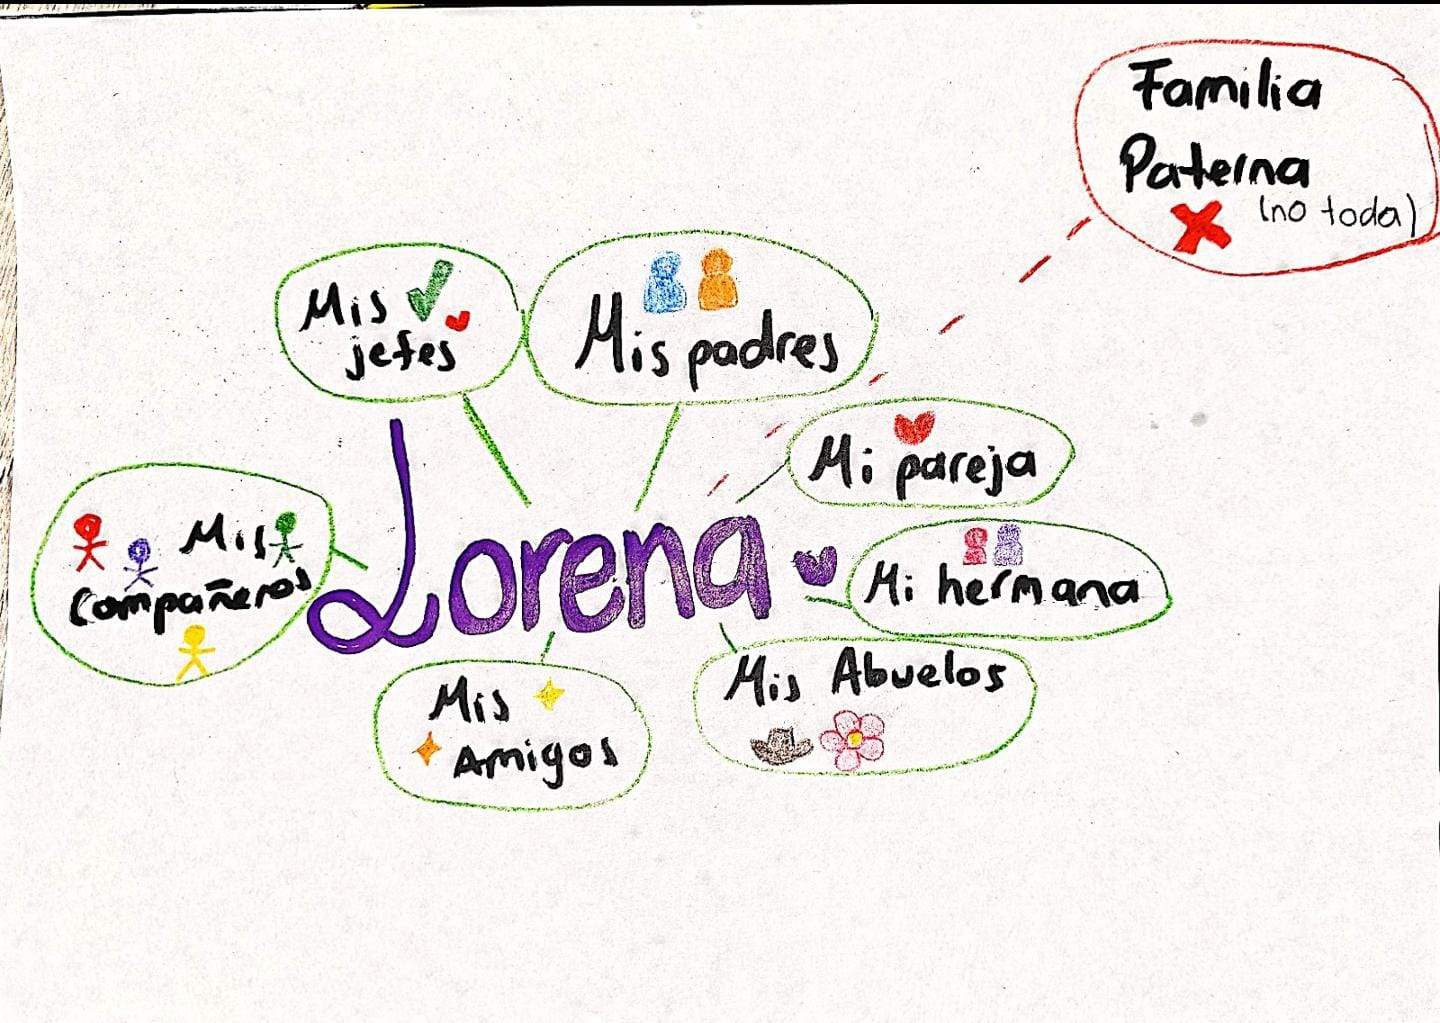 Familia
Paterna
(no toda)
Mis
jefes
Mis padres
Mi pareja
Mis
compañeros
Lorena
Mi hermana
Mis
Amigos
Mis Abuelos